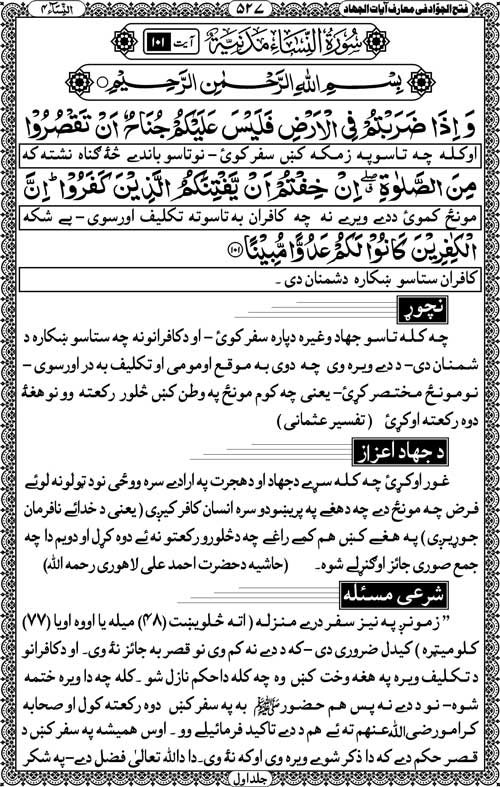 فتح الجوّاد فی معارف آیات الجهاد ۵۲۷ النِّسَآء ۴
سُوْرَةُ النِّسَاءِ مَدَنِيَّةٌ آیت ۱۰۱
بِسْمِ اللهِ الرَّحْمٰنِ الرَّحِيْمِ
وَاِذَا ضَرَبْتُمْ فِي الْاَرْضِ فَلَيْسَ عَلَيْكُمْ جُنَاحٌ اَنْ تَقْصُرُوْا
اوکله چه تاسو په زمکه کښ سفر کوئ - نو تاسو باندے څۀ ګناه نشته که
مِنَ الصَّلٰوةِ ۖ اِنْ خِفْتُمْ اَنْ يَّفْتِنَكُمُ الَّذِيْنَ كَفَرُوْا ؕ اِنَّ
مونځ کموئ ددے ویرے نه چه کافران به تاسو ته تکلیف اورسوی - بے شکه
الْكٰفِرِيْنَ كَانُوْا لَكُمْ عَدُوًّا مُّبِيْنًا ۱۰۱
کافران ستاسو ښکاره دشمنان دی .
نچوړ
چه کله تاسو جهاد وغیره دپاره سفر کوئ - او د کافرانو نه چه ستاسو ښکاره د
شمنان دی - د دے ویره وی چه دوی به موقع اومومی او تکلیف به در اورسوی -
نو مونځ مختصر کړئ - یعنی چه کوم مونځ په وطن کښ څلور رکعته وو نو هغۀ
دوه رکعته اوکړئ (تفسیر عثمانی)
د جهاد اعزاز
غور اوکړئ چه کله سړے د جهاد او د هجرت په ارادے سره ووځی نو د ټولو نه لوئے
فرض چه مونځ دے چه دهغے په پریښودو سره انسان کافر کیږی (یعنی د خدائے نافرمان
جوړیږی) په هغے کښ هم کمے راغے چه د څلورو رکعتو نه ئے دوه کړل او دویم دا چه
جمع صوری جائز اوګنړلے شوه. (حاشیه د حضرت احمد علی لاهوری رحمه الله)
شرعی مسئله
" زمونږ په نیز سفر درے منزله (اته څلویښت (۴۸) میله یا اووه اویا (۷۷)
کلومیټره) کیدل ضروری دی - که د دے نه کم وی نو قصر به جائز نۀ وی. او د کافرانو
د تکلیف ویره په هغه وخت کښ وه چه کله دا حکم نازل شو. کله چه دا ویره ختمه
شوه - نو د دے نه پس هم حضور ﷺ به په سفر کښ دوه رکعته کول او صحابه
کرامو رضی الله عنهم ته ئے هم د دے تاکید فرمائیلے وو. اوس همیشه په سفر کښ د
قصر حکم دے که دا ذکر شوے ویره وی او که نۀ وی. دا د الله تعالیٰ فضل دے - په شکر
جلد اول